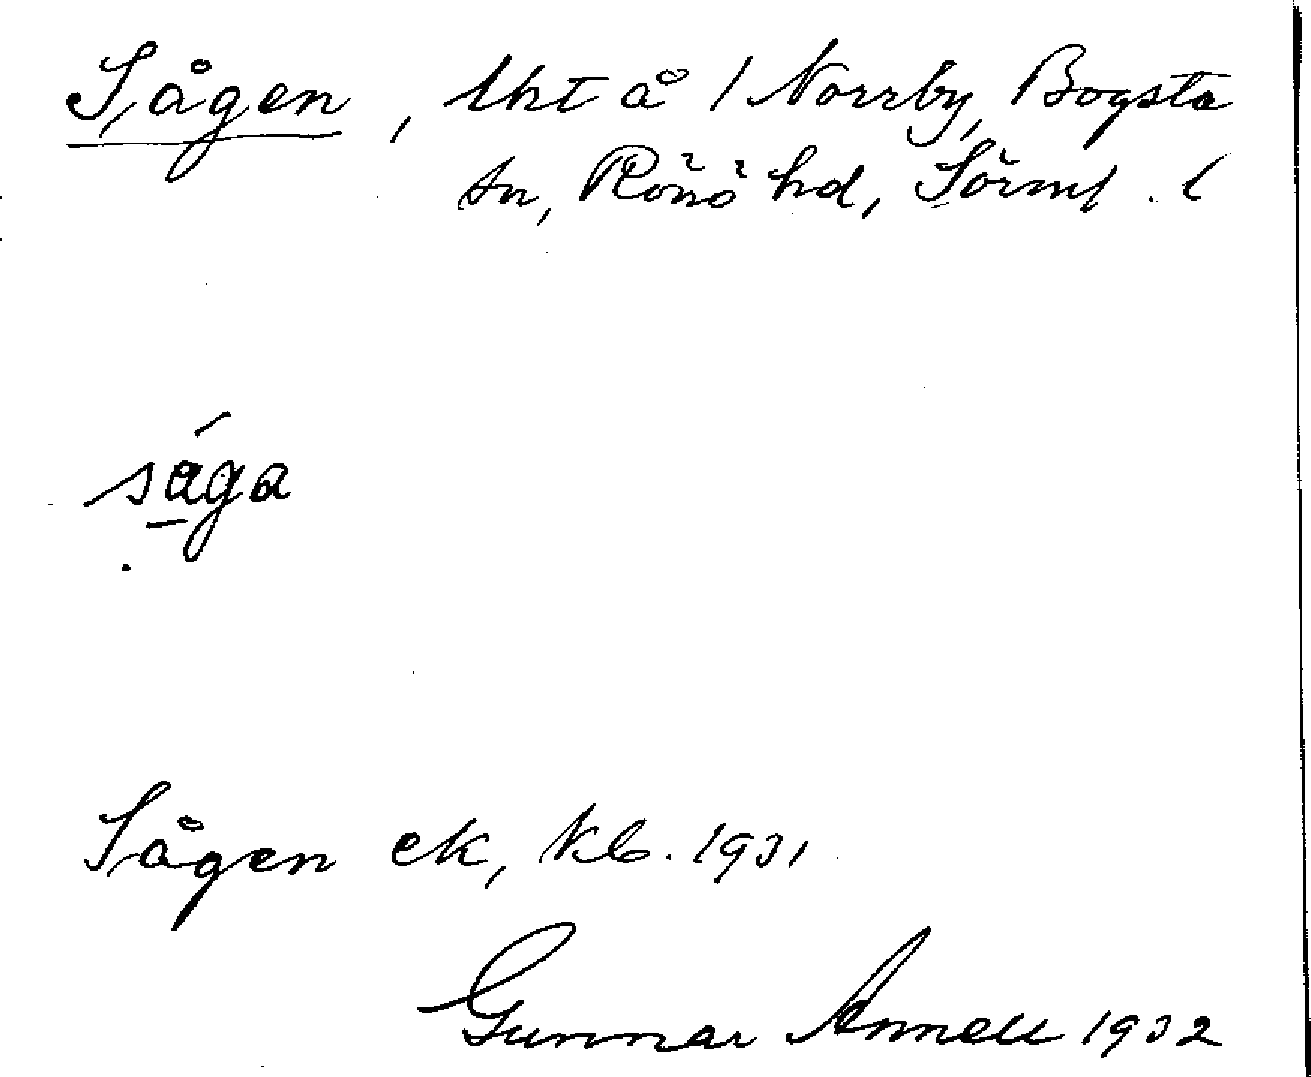 Sågen, lht å 1 Norrby, Bogsta
sn, Rönö hd, Sörml. l
såga
Sågen ek, kb. 1931
Gunnar Annell 1932